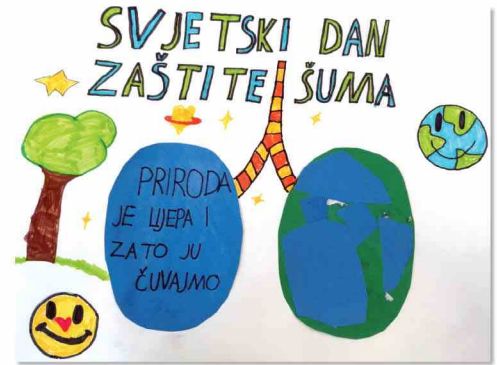 SVJETSKI DAN
ZAŠTITE ŠUMA
PRIRODA
JE LIJEPA I
ZATO JU
ČUVAJMO